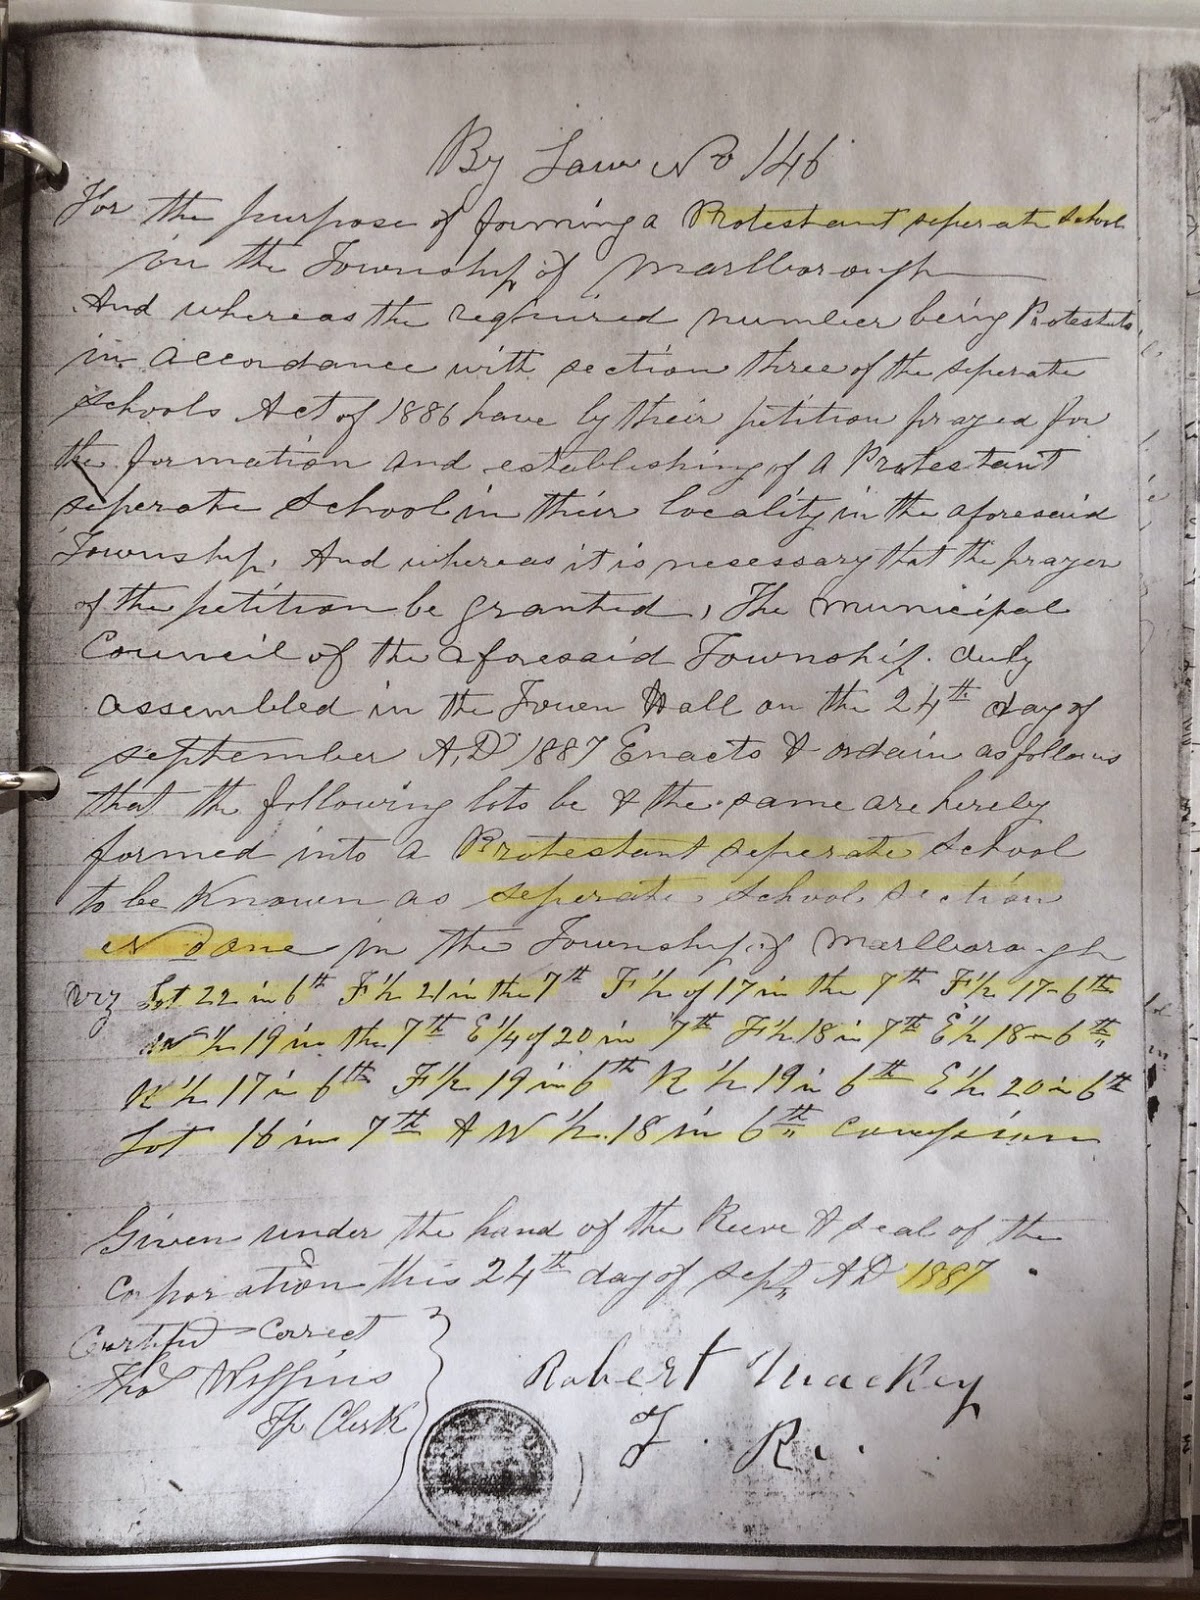 By Law No 146
For the purpose of forming a Protestant seperate school
in the Township of Marlborough
And whereas the required number being Protestants
in accordance with section three of the seperate
schools Act of 1886 have by their petition prayed for
the formation and establishing of a Protestant
seperate School in their locality in the aforesaid
Township. And whereas it is nesessary that the prayer
of the petition be granted, The Municipal
Council of the aforesaid Township duly
assembled in the Town Hall on the 24th day of
september A.D 1887 Enacts & ordain as follows
that the following lots be & the same are hereby
formed into a Protestant seperate School
to be Known as seperate School section
No one in the Township of Marlborough
viz Lot 22 in 6th F 1/2 21 in the 7th F 1/2 of 17 in the 7th F 1/2 17 - 6th
W 1/2 19 in the 7th E 1/4 of 20 in 7th F 1/2 18 in 7th E 1/2 18 - 6th
1/2 17 in 6th F 1/2 19 in 6th R 1/2 19 in 6th E 1/2 20 in 6th
Lot 16 in 7th & W 1/2 18 in 6th
Given under the hand of the Reeve & seal of the
Corporation this 24th day of Sept AD 1887
Certified Correct
Thos Wiggins
Tp Clerk
Robert Mackey
T. R.